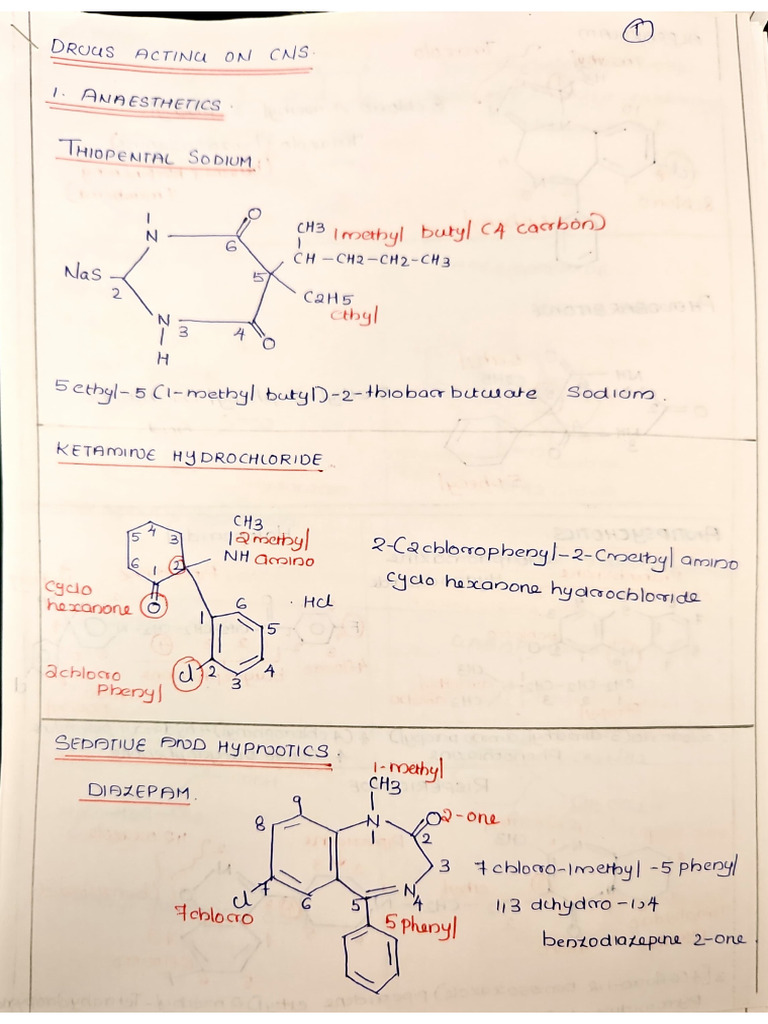 1
DRUGS ACTING ON CNS.
1. ANAESTHETICS.
THIOPENTAL SODIUM
1
N
O
6
CH3 1methyl butyl (4 carbon)
CH-CH2-CH2-CH3
NaS
2
5
C2H5
ethyl
N
3
4
O
H
5 ethyl-5(1-methyl butyl)-2-thiobarbiturate Sodium.
KETAMINE HYDROCHLORIDE
CH3
2methyl
NH amino
5 4 3
6 1 2
cyclo
hexanone O
2-(2chlorophenyl-2-(methyl amino
cyclo hexanone hydrochloride
. Hcl
1 6
5
2chloro
Phenyl
cl 2
3
4
SEDATIVE AND HYPNOTICS.
DIAZEPAM.
1-methyl
CH3
9
8
N
O 2-one
2
3
7
cl
7chloro
6
5
N
4
5 phenyl
7chloro-1methyl-5phenyl
1,3 dihydro-1,4
benzodiazepine 2-one